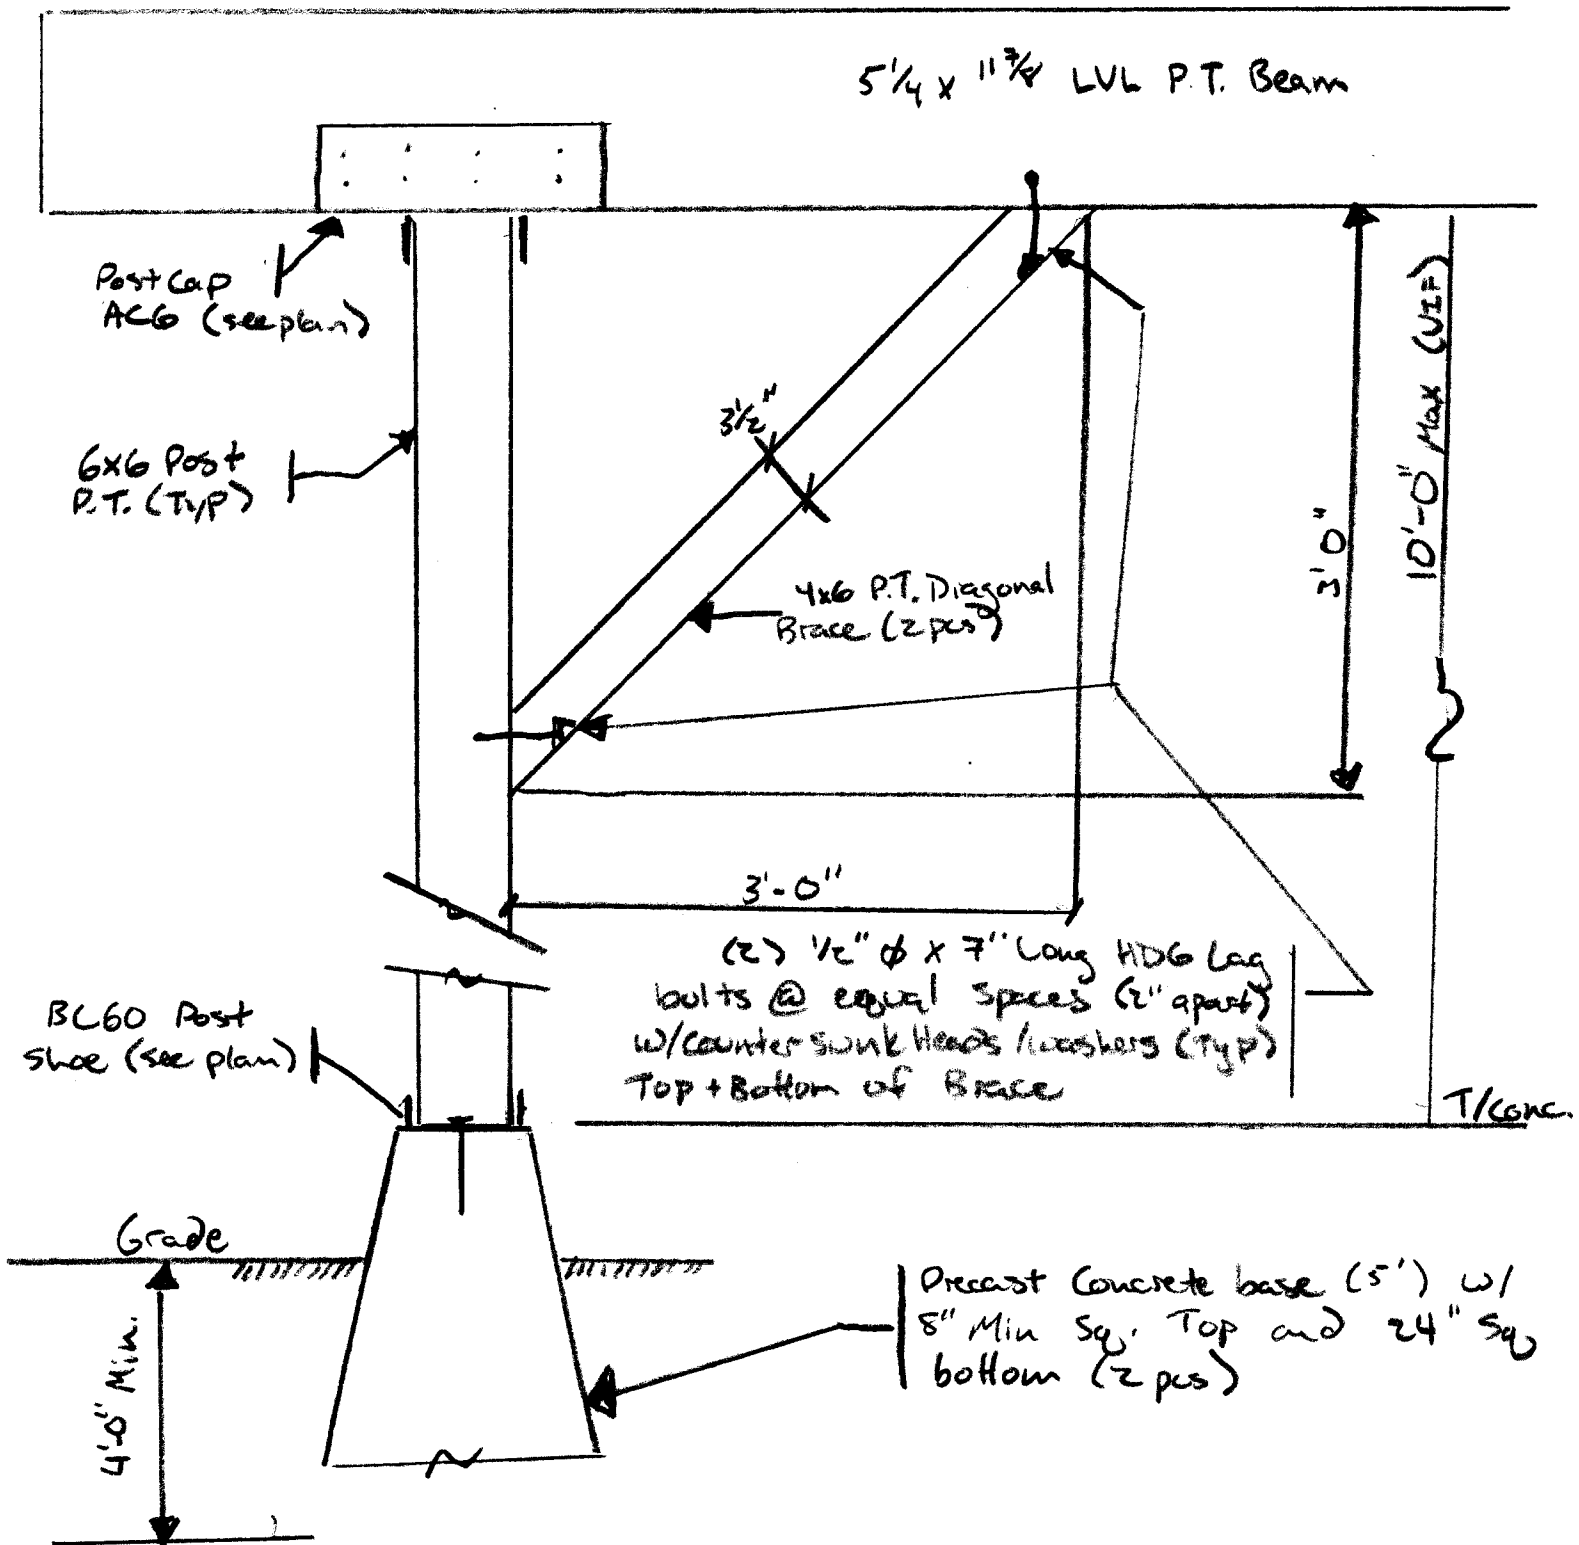 5 1/4 x 11 7/8 LVL P.T. Beam
Post Cap
AC6 (see plan)
6x6 Post
P.T. (Typ)
3 1/2"
4x6 P.T. Diagonal
Brace (2 pcs)
3'-0"
3'0"
10'-0" Max (VIF)
(2) 1/2" ø x 7" Long HDG Lag
bolts @ equal spaces (2" apart)
w/Counter Sunk Heads /washers (Typ)
Top + Bottom of Brace
BC60 Post
Shoe (see plan)
T/conc.
Grade
4'-0" Min.
Precast Concrete base (5') w/
8" Min Sq. Top and 24" Sq
bottom (2 pcs)